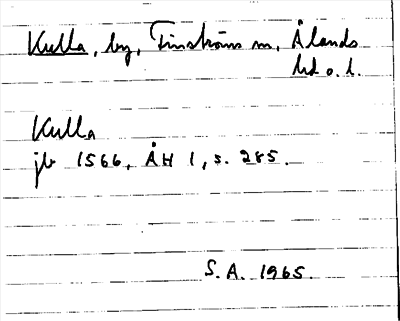 Kulla, by, Finströms sn, Ålands
hd o. l.
Kulla
jb 1566, ÅH 1, s. 285.
S.A. 1965.